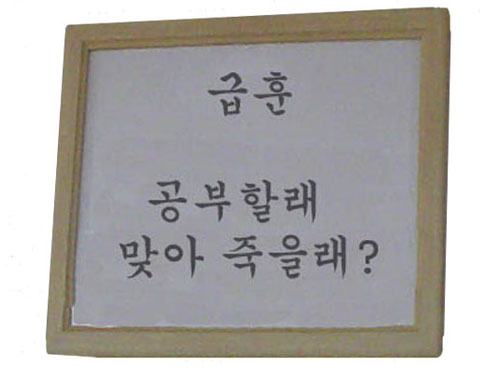 급훈
공부할래
맞아 죽을래?